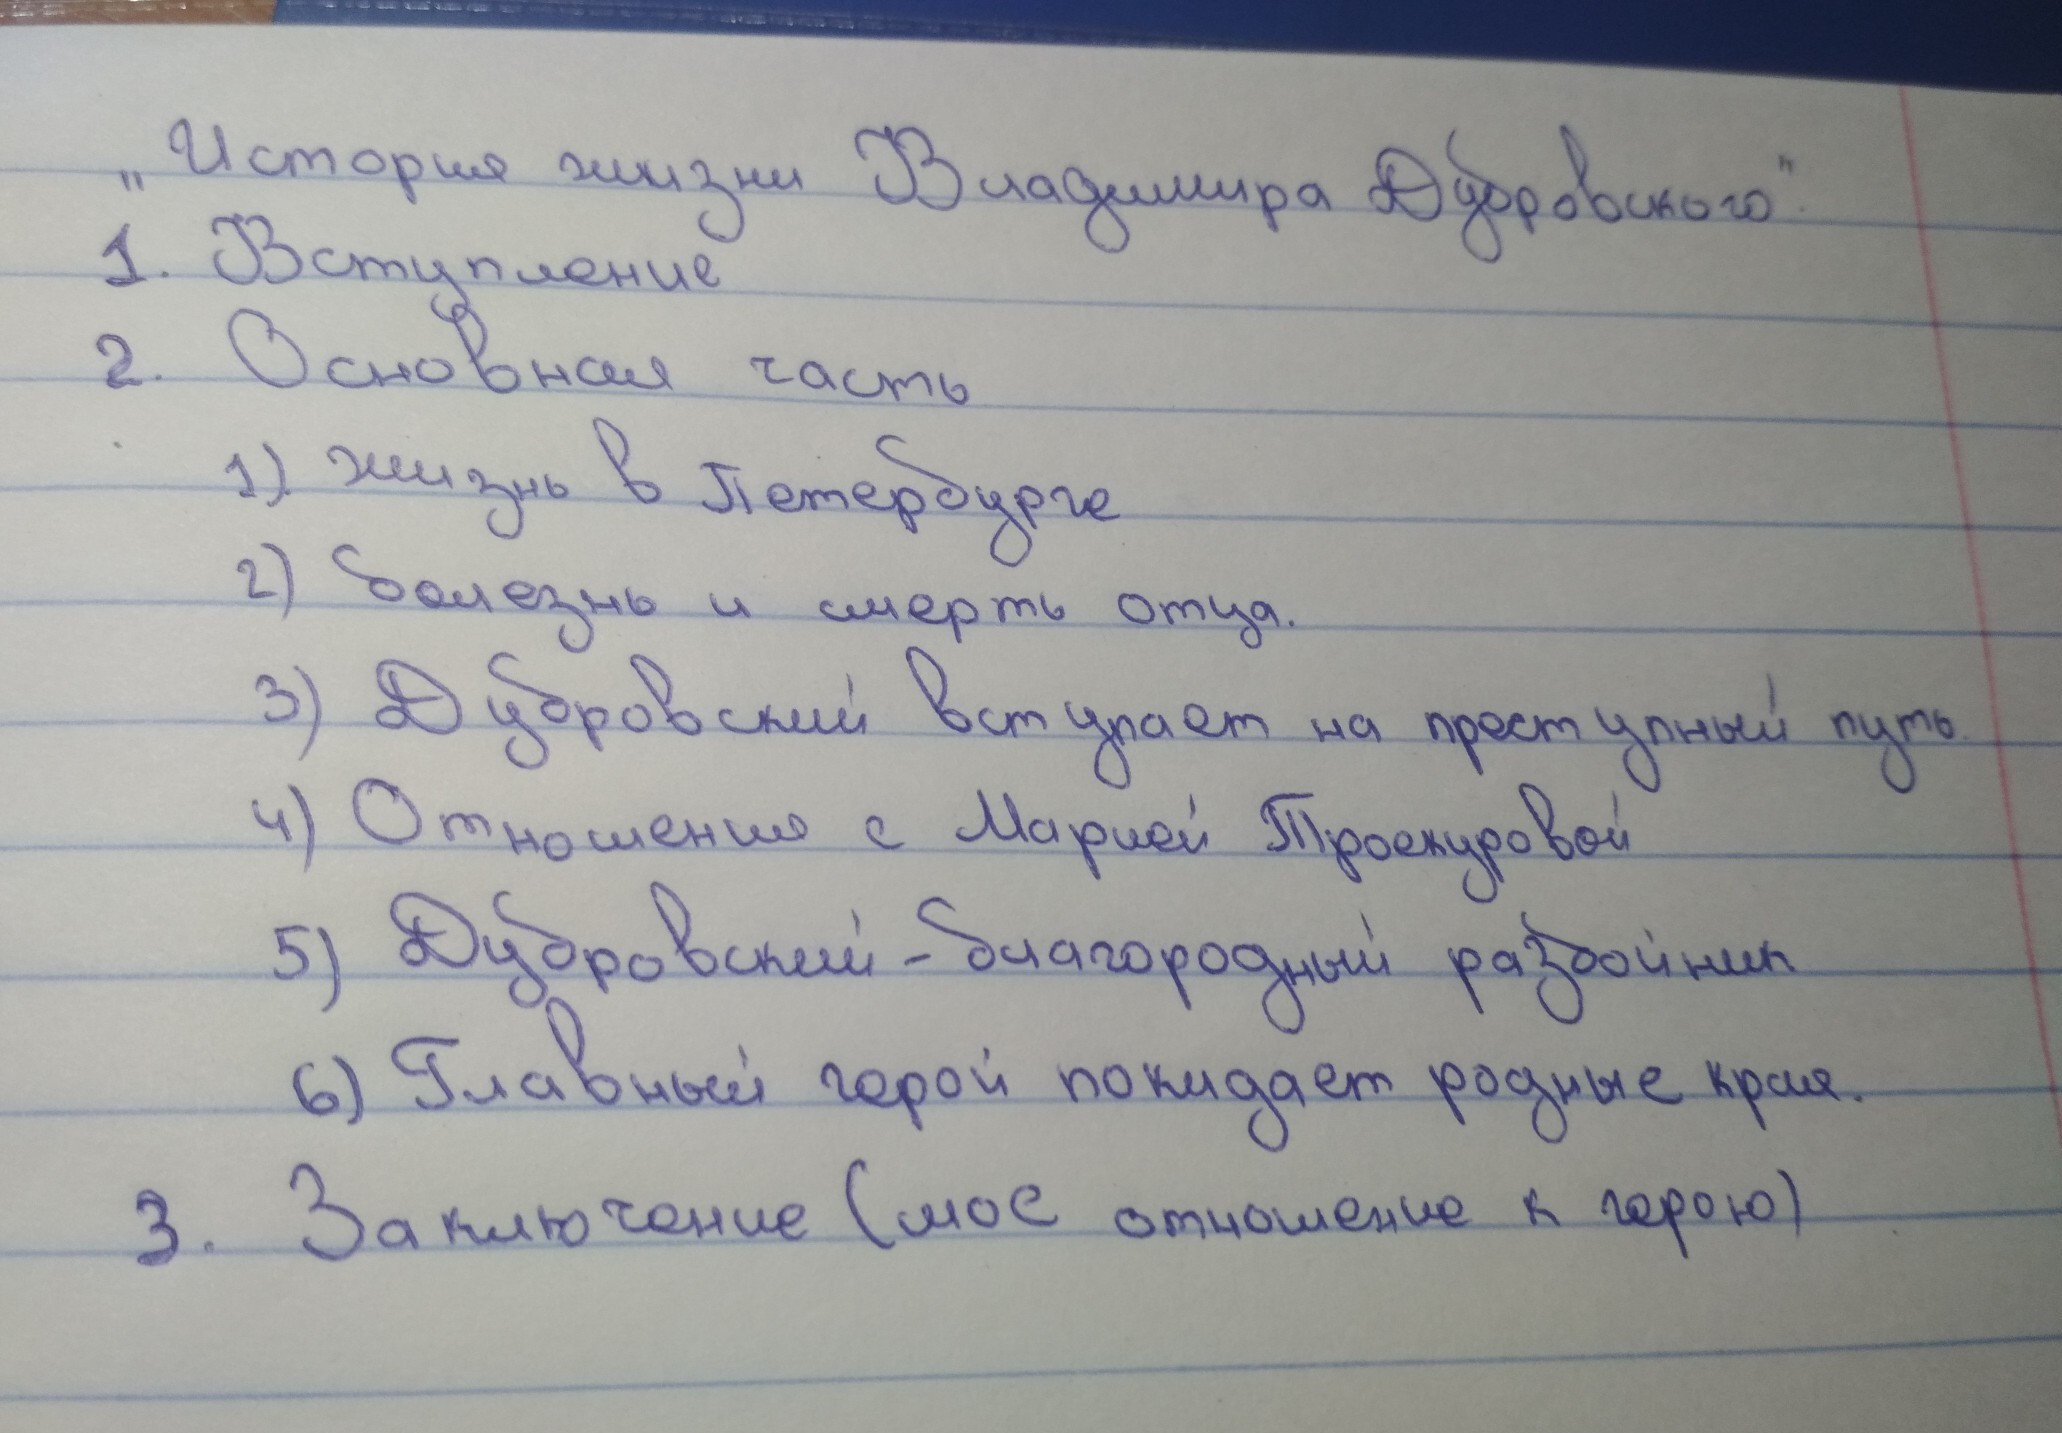 „История жизни Владимира Дубровского".
1. Вступление
2. Основная часть
1) жизнь в Петербурге
2) болезнь и смерть отца.
3) Дубровский вступает на преступный путь.
4) Отношения с Марией Троекуровой
5) Дубровский - благородный разбойник
6) Главный герой покидает родные края.
3. Заключение (мое отношение к герою)